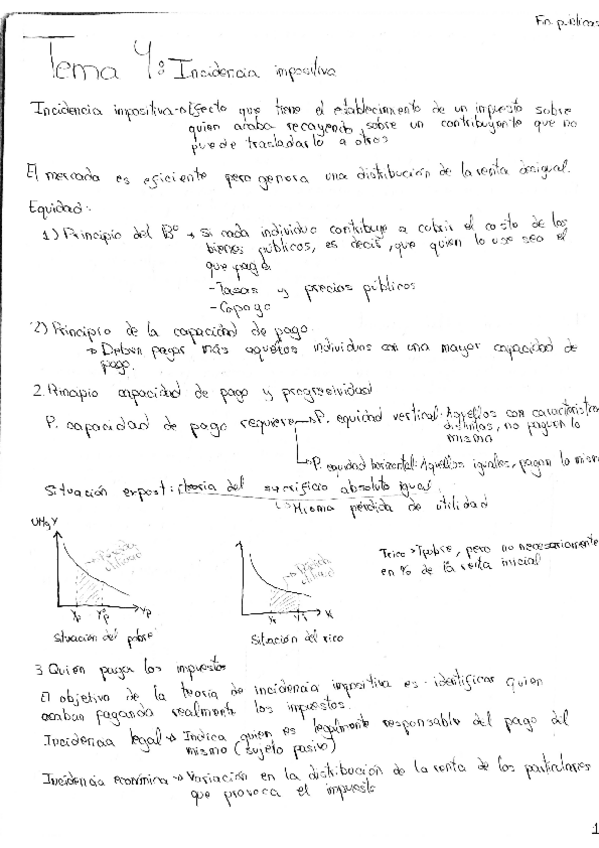 Fin. públicas
Tema 4: Incidencia impositiva
Incidencia impositiva→efecto que tiene el establecimiento de un impuesto sobre
quien acaba recayendo, sobre un contribuyente que no
puede trasladarlo a otros
El mercado es eficiente pero genera una distribución de la renta desigual.
Equidad:
1) Principio del Bº → Si cada individuo contribuye a cubrir el costo de los
bienes públicos, es decir, que quien lo use sea el
que paga.
- Tasas y precios públicos
- Copago
2) Principio de la capacidad de pago.
→ Deben pagar más aquellos individuos con una mayor capacidad de
pago.
2. Principio capacidad de pago y progresividad
P. capacidad de pago requiere→P. equidad vertical: Aquellos con característica
distintas, no paguen lo
mismo
P. equidad horizontal: Aquellos iguales, pagan lo mismo
Situación expost: teoría del sacrificio absoluto igual
↳Misma pérdida de utilidad
UMg Y
Pérdida utilidad
Yp
Situación del pobre
Pérdida utilidad
Situación del rico
Trico > Tpobre, pero no necesariamente
en % de la renta inicial
3 Quién pagan los impuestos
El objetivo de la teoría de incidencia impositiva es identificar quien
acaban pagando realmente los impuestos.
Incidencia legal → Indica quien es legalmente responsable del pago del
mismo (sujeto pasivo)
Incidencia económica → Variación en la distribución de la renta de los particulares
que provoca el impuesto
1